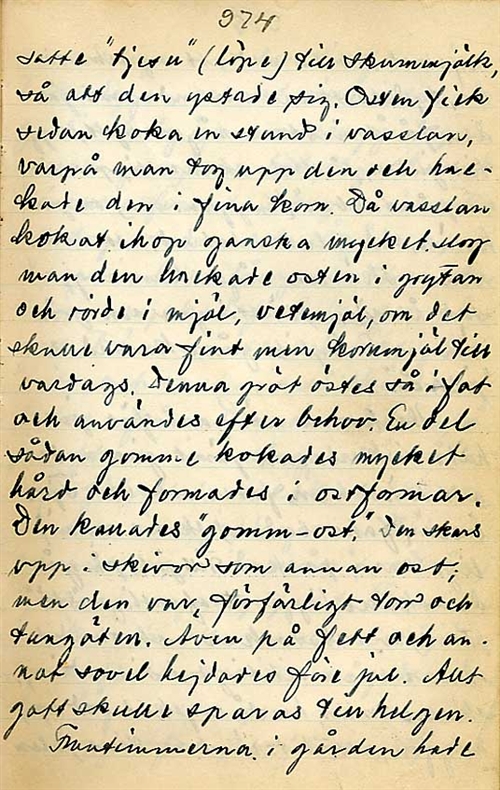 974
satte "tjesu" (löpe) till skummjölk,
så att den ystade sig. Osten fick
sedan koka en stund i vasslan,
varpå man tog upp den och hac-
kade den i fina korn. Då vasslan
kokat ihop ganska mycket, slog
man den hackade osten i grytan
och rörde i mjöl, vetemjöl, om det
skulle vara fint men kornmjöl till
vardags. Denna gröt östes så i fat
och användes efter behov. En del
sådan gomme kokades mycket
hård och formades i ostformar.
Den kallades "gomm-ost." Den skars
upp i skivor som annan ost,
men den var förfärligt torr och
tungäten. Även på fett och an-
nat sovel hejdades före jul. Allt
gott skulle sparas till helgen.
Fruntimmerna i gården hade